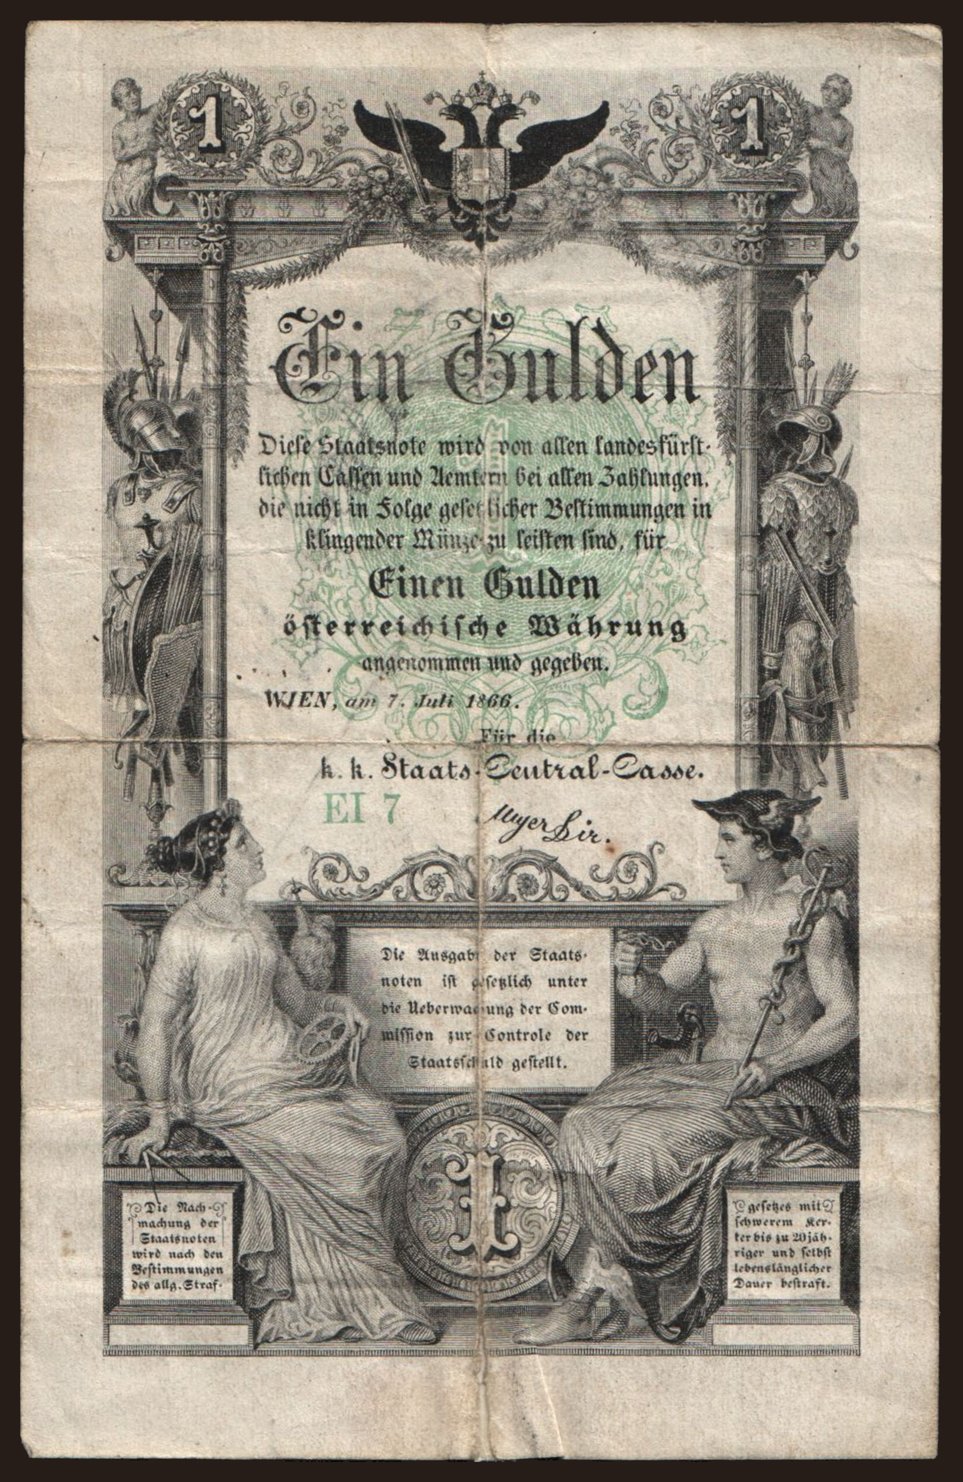 1 1
Ein Gulden
Diese Staatsnote wird von allen landesfürst-
lichen Cassen und Aemtern bei allen Zahlungen,
die nicht in Folge gesetzlicher Bestimmungen in
klingender Münze zu leisten sind, für
Einen Gulden
österreichische Währung
angenommen und gegeben.
WIEN, am 7. Juli 1866.
Für die
k. k. Staats-Central-Casse.
EI 7
Meyer Dir.
Die Ausgabe der Staats-
noten ist gesetzlich unter
die Ueberwachung der Com-
mission zur Controle der
Staatsschuld gestellt.
1
Die Nach-
machung der
Staatsnoten
wird nach den
Bestimmungen
des allg. Straf-
gesetzes mit
schwerem Ker-
ker bis zu 20jäh-
riger und selbst
lebenslänglicher
Dauer bestraft.